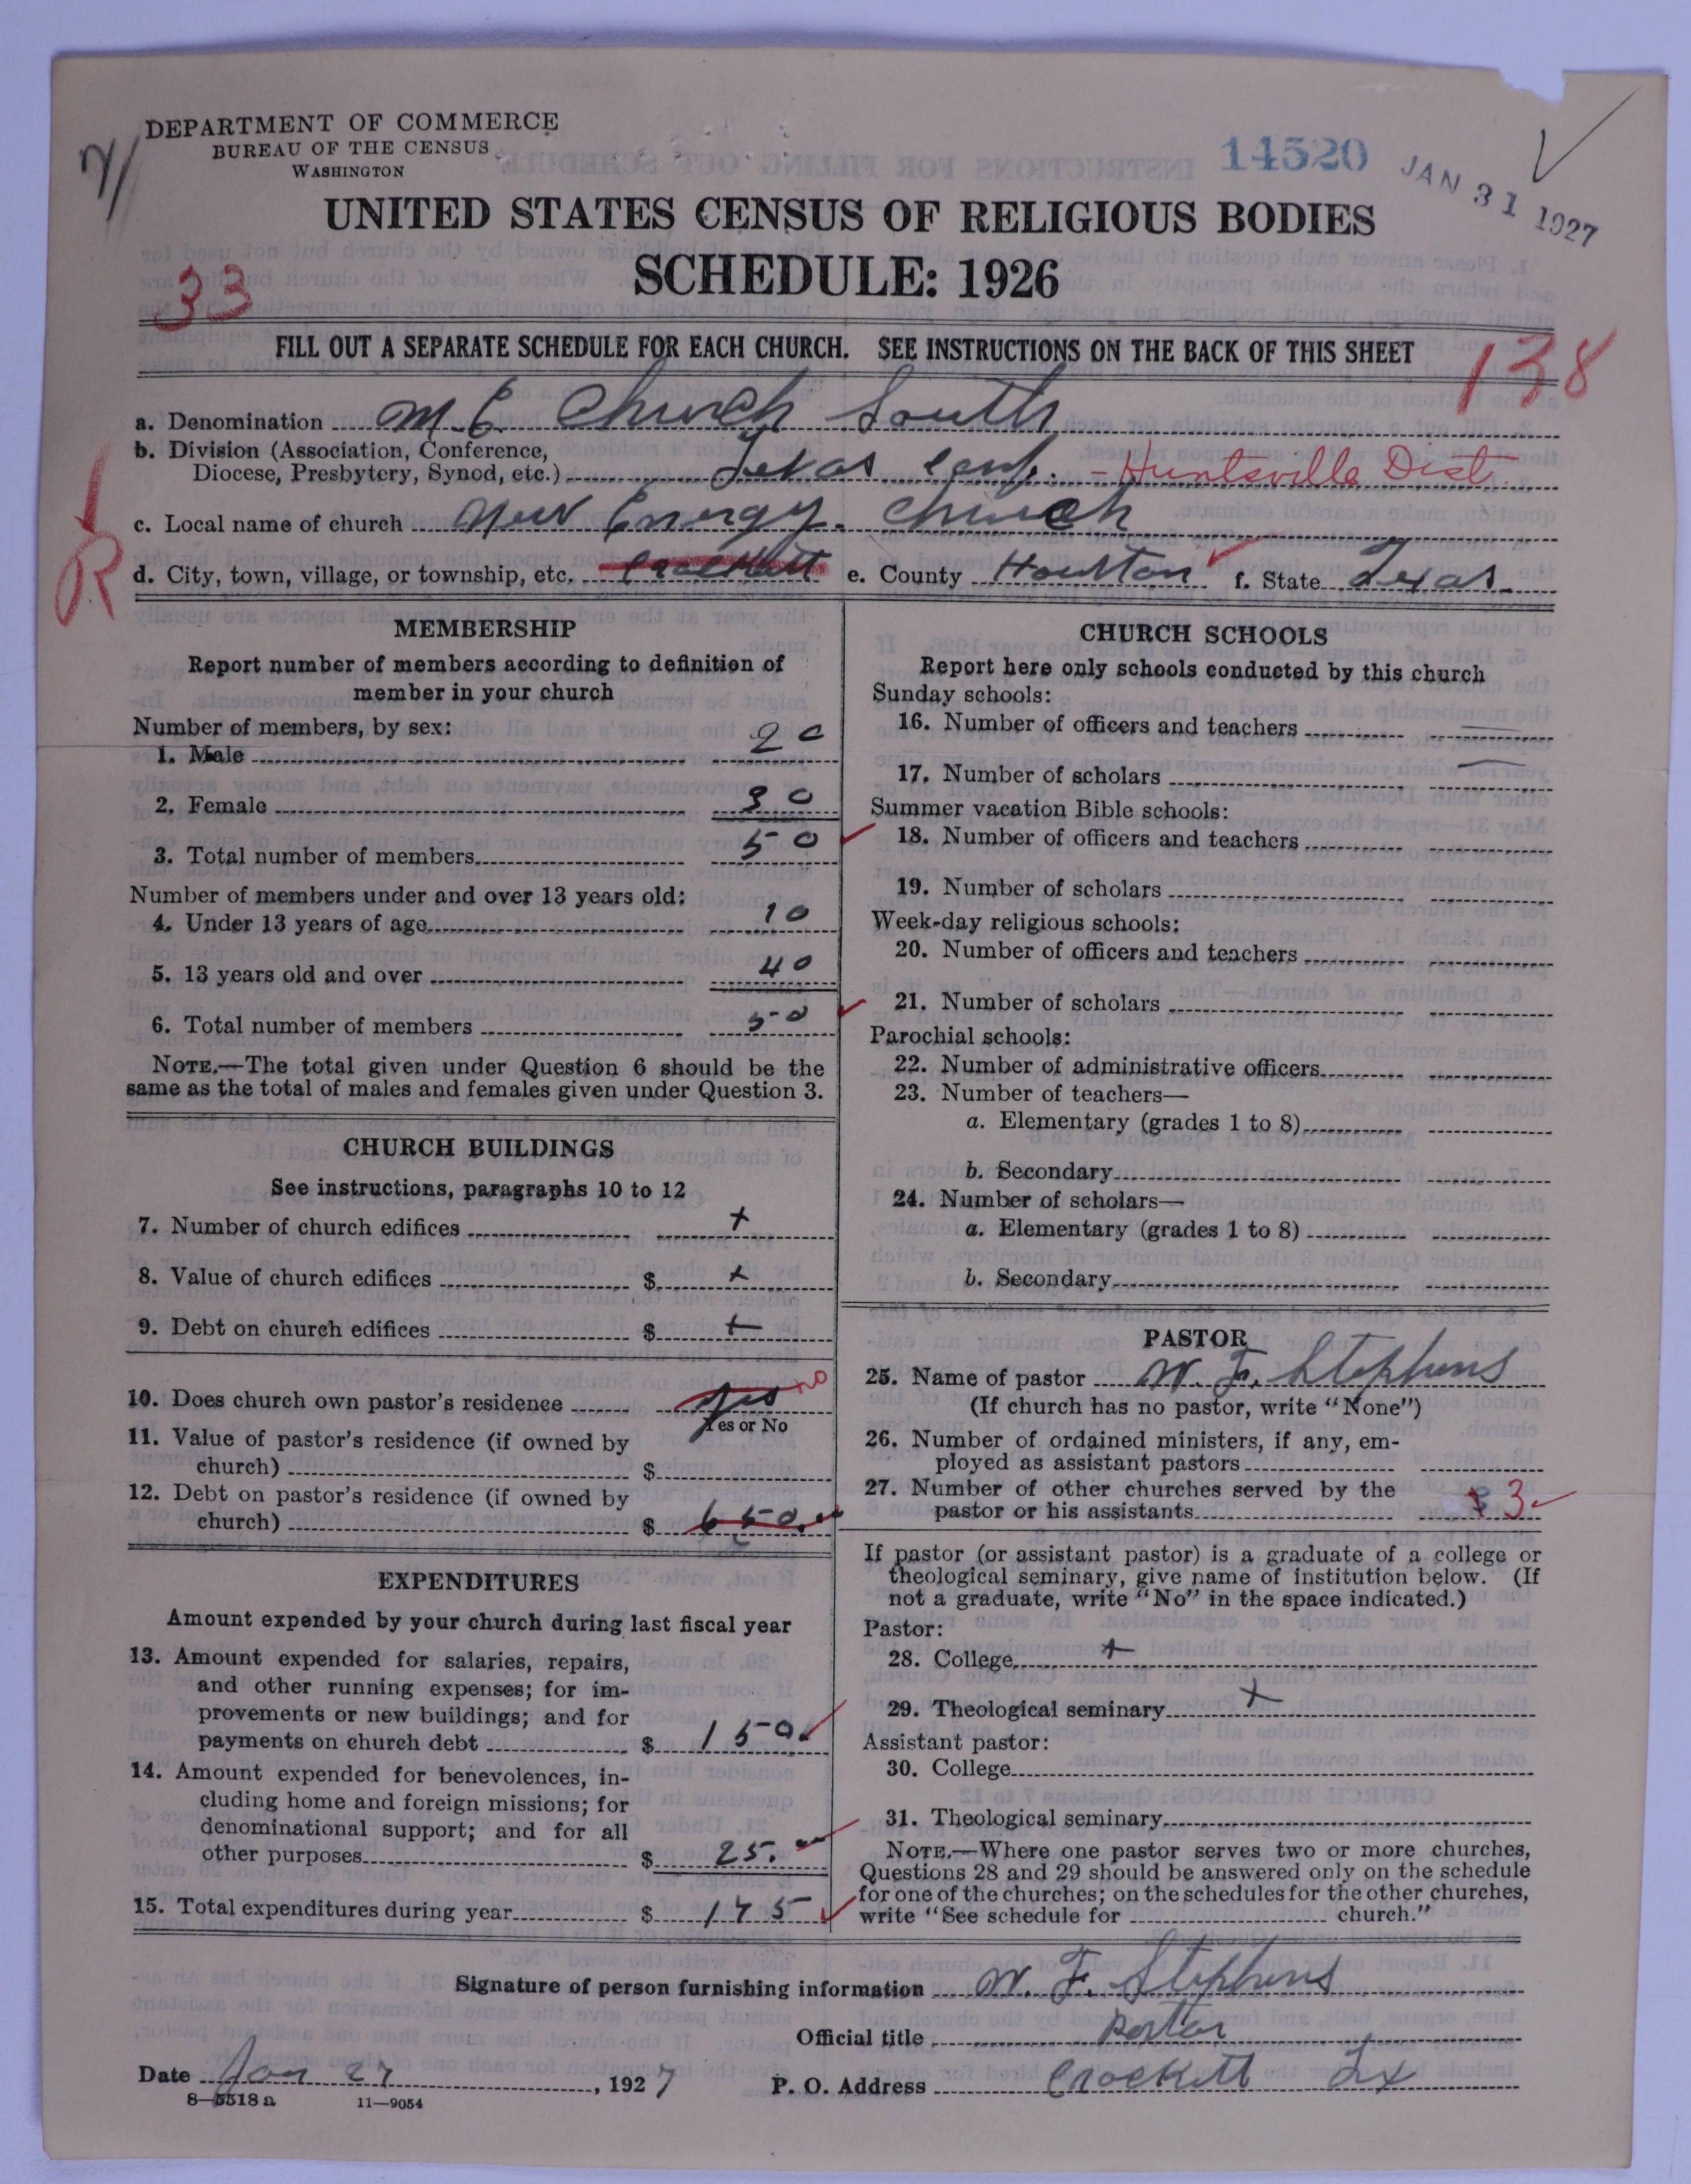 DEPARTMENT OF COMMERCE
BUREAU OF THE CENSUS
WASHINGTON
14520
JAN 31 1927
UNITED STATES CENSUS OF RELIGIOUS BODIES
SCHEDULE: 1926
33
FILL OUT A SEPARATE SCHEDULE FOR EACH CHURCH. SEE INSTRUCTIONS ON THE BACK OF THIS SHEET
138
a. Denomination M E Church South
b. Division (Association, Conference,
Diocese, Presbytery, Synod, etc.) Texas Conf. - Huntsville Dist
c. Local name of church New Energy. Church
R
d. City, town, village, or township, etc. Crockett e. County Houston f. State Texas.
MEMBERSHIP
Report number of members according to definition of
member in your church
Number of members, by sex:
1. Male 20
2. Female 30
3. Total number of members 50
Number of members under and over 13 years old:
4. Under 13 years of age 10
5. 13 years old and over 40
6. Total number of members 50
NOTE.—The total given under Question 6 should be the
same as the total of males and females given under Question 3.
CHURCH BUILDINGS
See instructions, paragraphs 10 to 12
7. Number of church edifices +
8. Value of church edifices $ +
9. Debt on church edifices $ +
10. Does church own pastor's residence yes no
Yes or No
11. Value of pastor's residence (if owned by
church) $
12. Debt on pastor's residence (if owned by
church) $ 650.
EXPENDITURES
Amount expended by your church during last fiscal year
13. Amount expended for salaries, repairs,
and other running expenses; for im-
provements or new buildings; and for
payments on church debt $ 150.
14. Amount expended for benevolences, in-
cluding home and foreign missions; for
denominational support; and for all
other purposes $ 25.
15. Total expenditures during year $ 175
CHURCH SCHOOLS
Report here only schools conducted by this church
Sunday schools:
16. Number of officers and teachers —
17. Number of scholars —
Summer vacation Bible schools:
18. Number of officers and teachers
19. Number of scholars
Week-day religious schools:
20. Number of officers and teachers
21. Number of scholars
Parochial schools:
22. Number of administrative officers
23. Number of teachers—
a. Elementary (grades 1 to 8)
b. Secondary
24. Number of scholars—
a. Elementary (grades 1 to 8)
b. Secondary
PASTOR
25. Name of pastor W. F. Stephens
(If church has no pastor, write "None")
26. Number of ordained ministers, if any, em-
ployed as assistant pastors
27. Number of other churches served by the
pastor or his assistants 3
If pastor (or assistant pastor) is a graduate of a college or
theological seminary, give name of institution below. (If
not a graduate, write "No" in the space indicated.)
Pastor:
28. College +
29. Theological seminary +
Assistant pastor:
30. College
31. Theological seminary
NOTE.—Where one pastor serves two or more churches,
Questions 28 and 29 should be answered only on the schedule
for one of the churches; on the schedules for the other churches,
write "See schedule for church."
Signature of person furnishing information W. F. Stephens
Official title Pastor
Date Jan 27, 1927 P. O. Address Crockett Tx
8—5518 a 11—9054